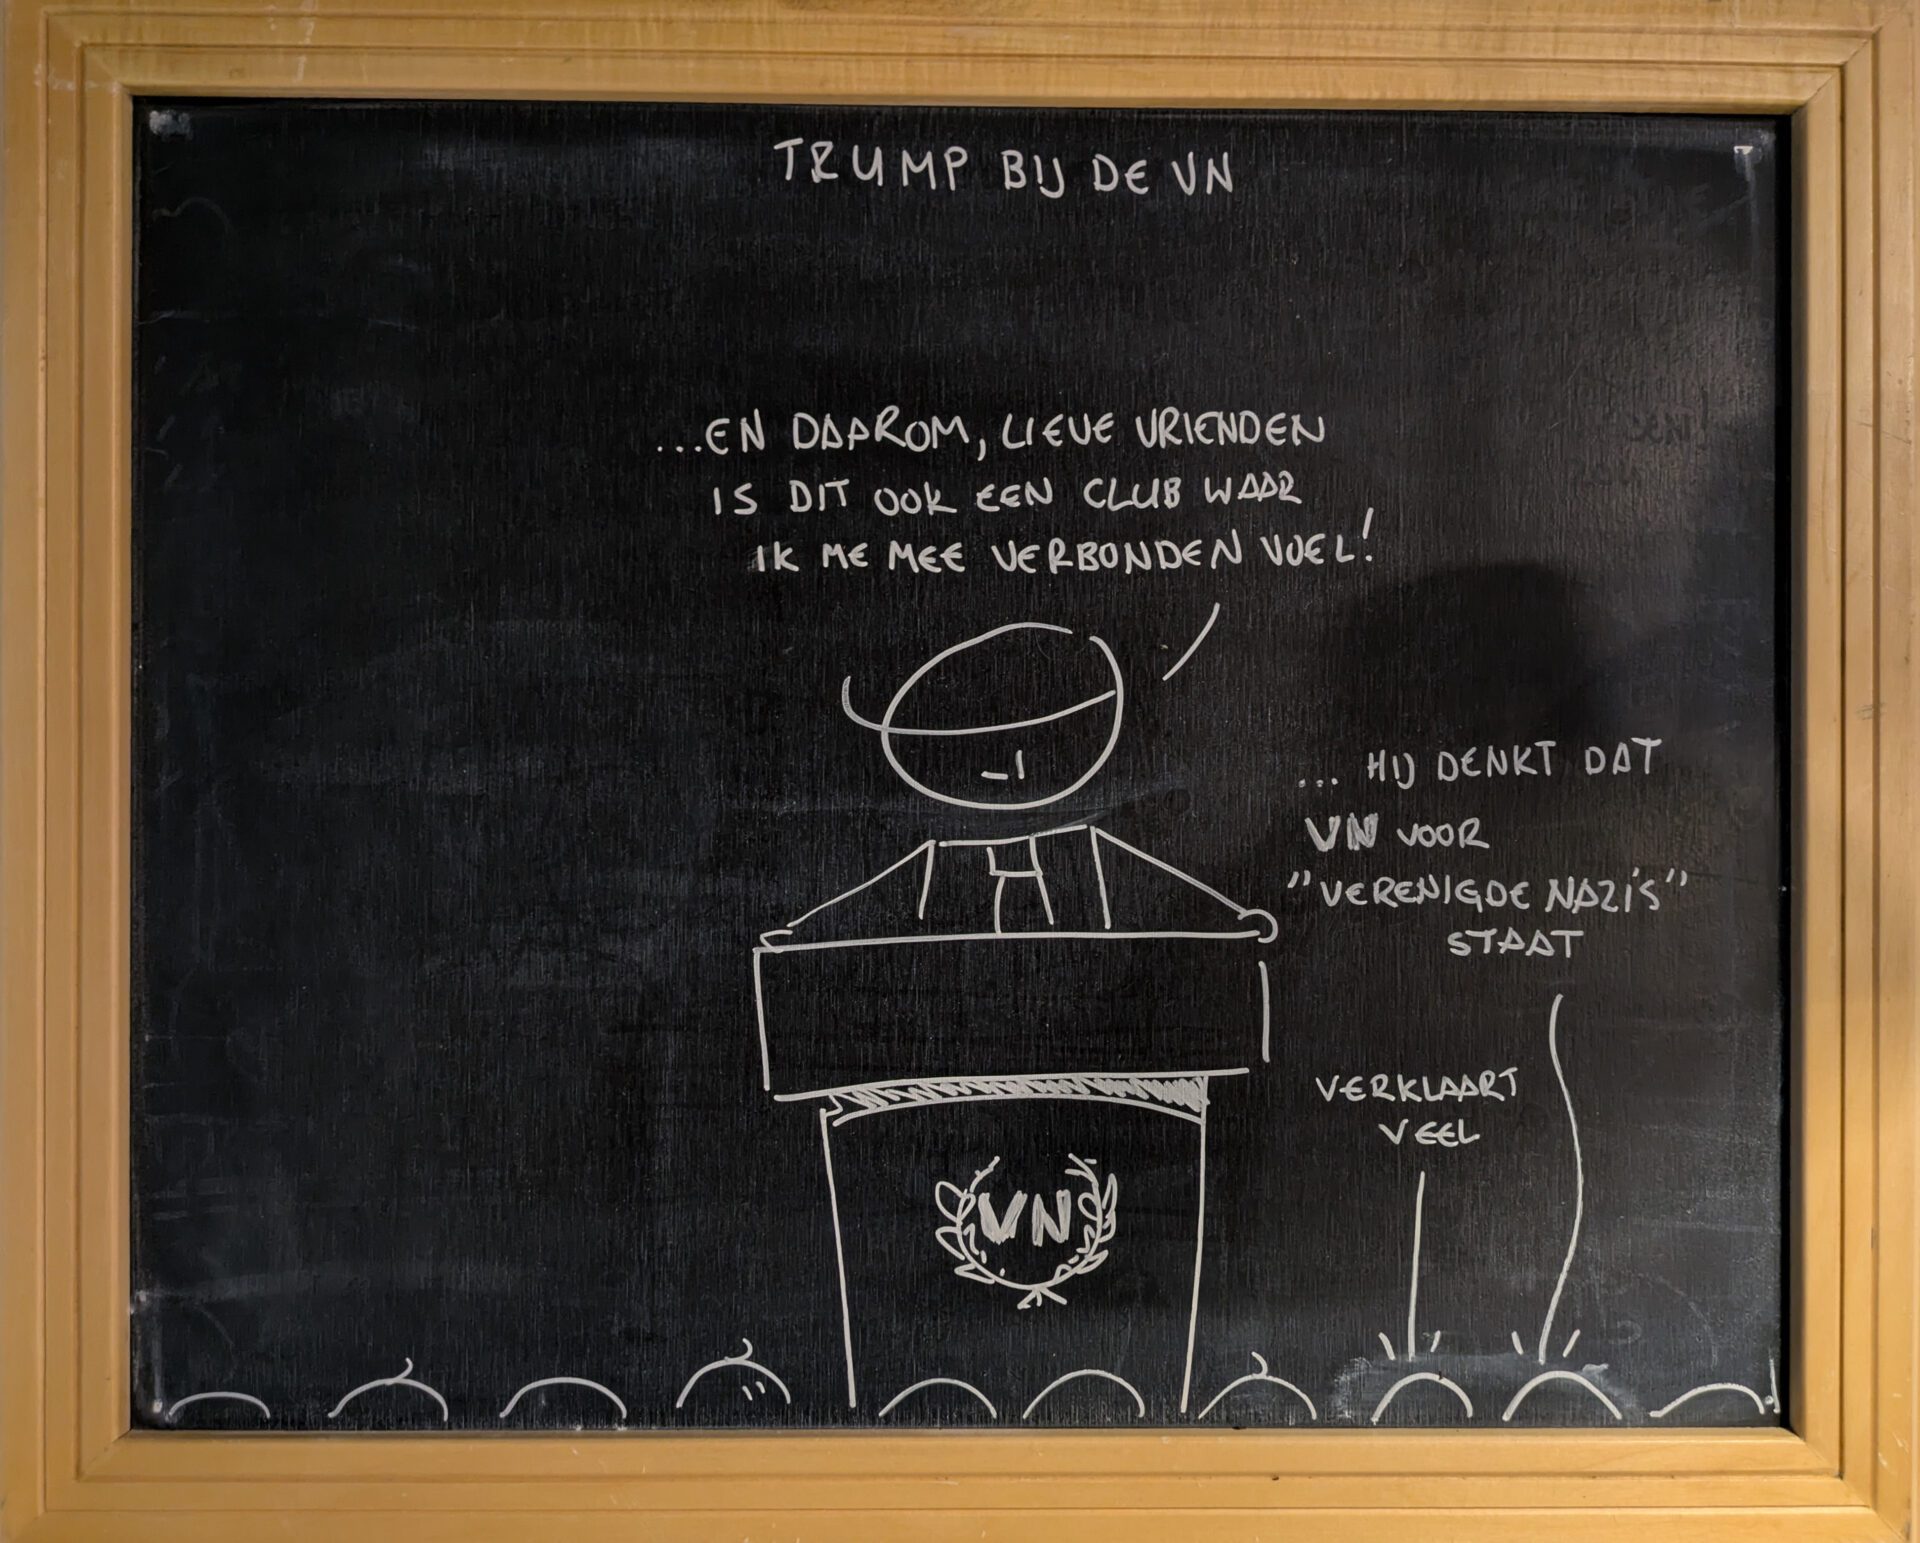 TRUMP BIJ DE VN
...EN DAAROM, LIEVE VRIENDEN
IS DIT OOK EEN CLUB WAAR
IK ME MEE VERBONDEN VOEL!
... HIJ DENKT DAT
VN VOOR
"VERENIGDE NAZI'S"
STAAT
VERKLAART
VEEL
VN